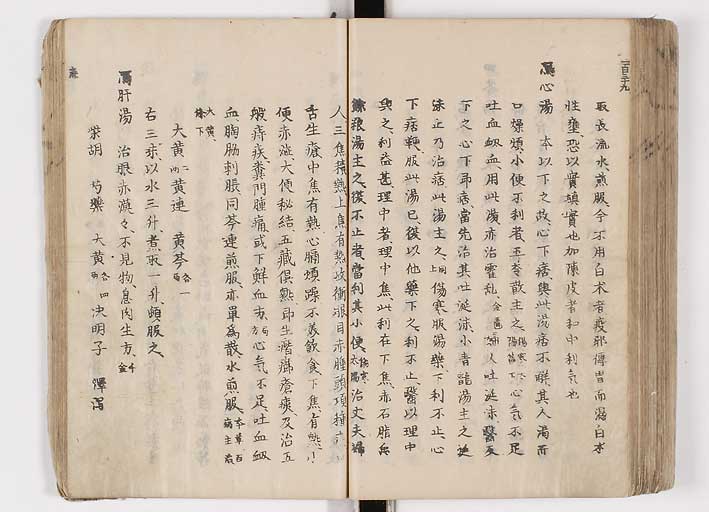 百三十九
取長流水煎服今不用白朮者疫邪傳胃而瀉白朮
性壅恐以實填實也加陳皮者和中利氣也
瀉心湯 本以下之故心下痞與此湯痞不解其人渴而
口燥煩小便不利者五苓散主之 心氣不足
吐血衂血用此湯亦治霍乱 婦人吐涎沫醫反
下之心下即痞當先治其吐涎沫小青龍湯主之
沫止乃治痞此湯主之 傷寒服湯藥下利不止心
下痞鞕服此湯已復以他藥下之利不止醫以理中
與之利益甚理中者理中焦此利在下焦赤石脂禹
餘粮湯主之復不止者當利其小便 治丈夫婦
人三焦積熱上焦有熱攻衝眼目赤腫頭項腫痛口
舌生瘡中焦有熱心膈煩躁不美飲食下焦有熱小
便赤澁大便秘結五藏俱熱即生癰癤瘡痍及治五
般痔疾糞門腫痛或下鮮血 心氣不足吐血衂
血胸肋刺脹同芩連煎服亦單為散水煎服
大黄
大黄二兩 黄連 黄芩各一兩
右三味以水三升煮取一升頓服之
瀉肝湯 治眼赤漠々不見物息肉生方千金
柴胡 芍藥 大黄各四兩 决明子 澤瀉